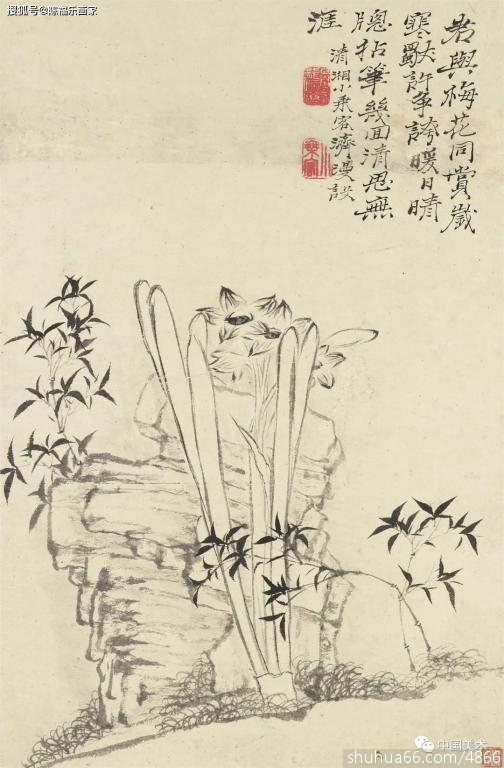 搜狐号@陈福乐画家
君與梅花同賞歲
寒獻許爭誇暖日晴
牕拈筆幾回清思無
涯
清湘小乘客濟漫設
中国美术
shuhua66.com/4866